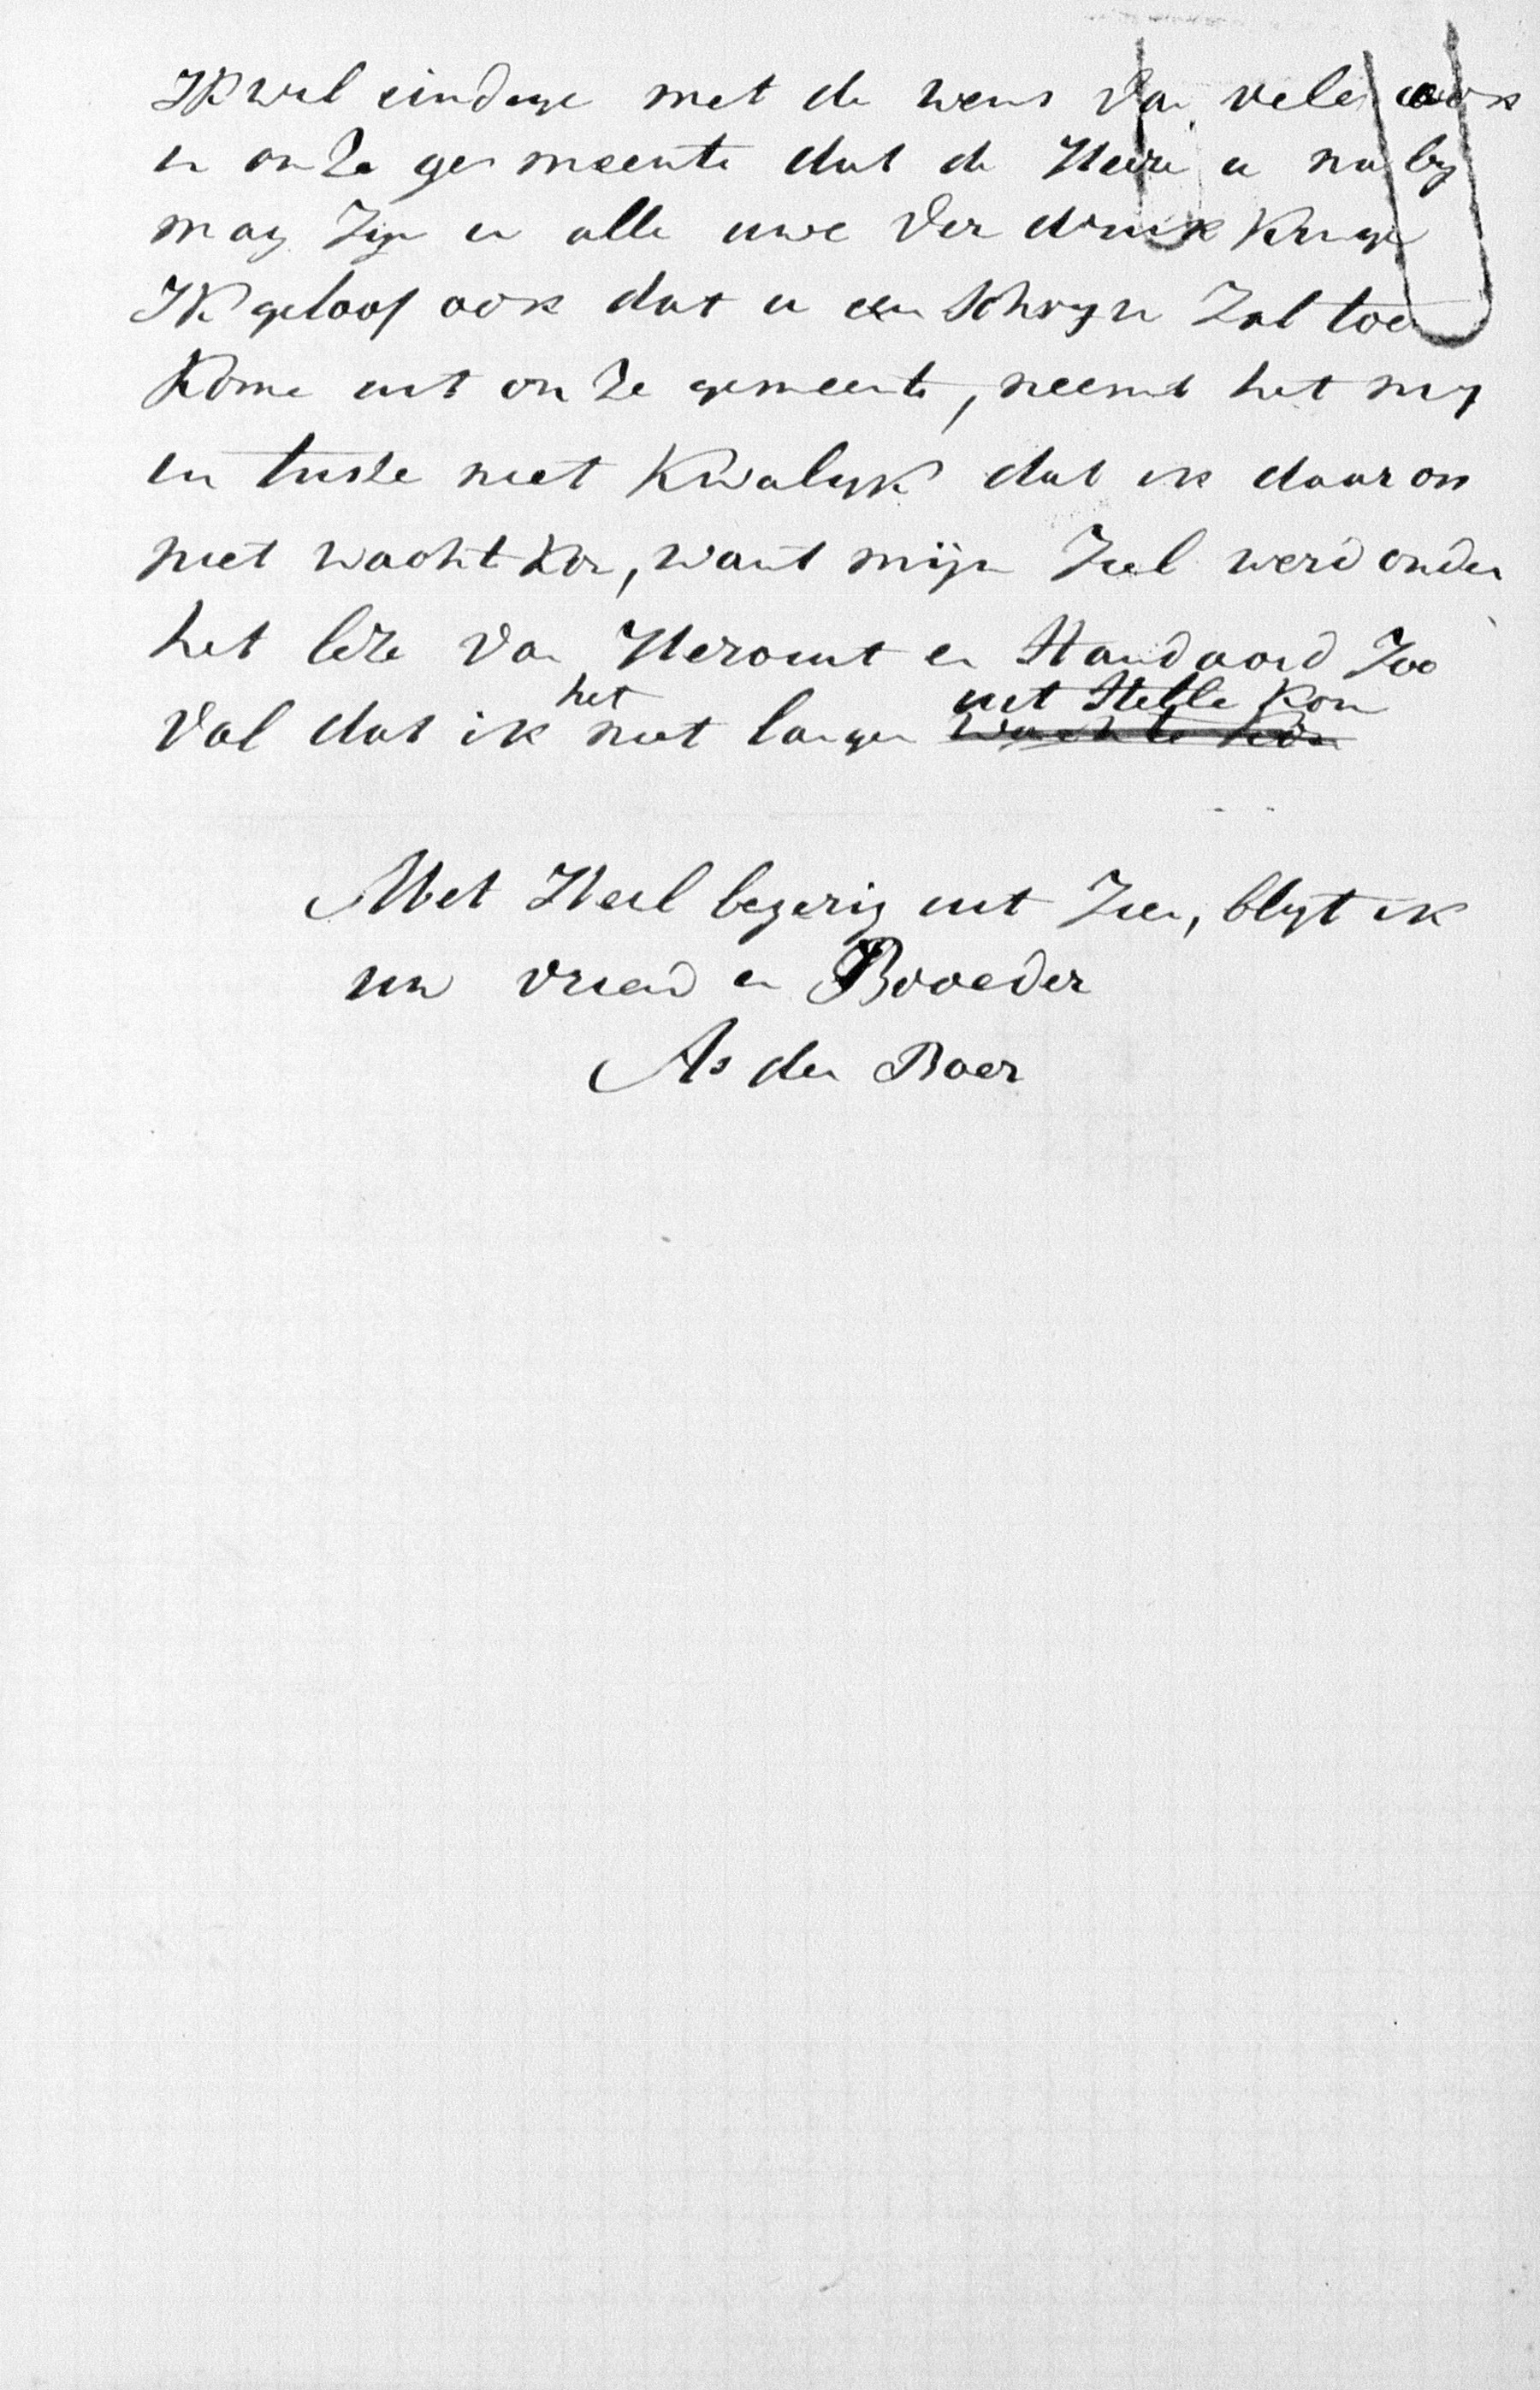 IK wil eindege met de wens va vele ook
in onze ge meente dat de Heere u naby
mag Zyn in alle uwe ver druk Kinge
IK geloof ook dat u een schryve Zal toe
Kome uit on Ze gemeente, neemt het my
in tusse niet Kwalyk dat ik daar op
niet wacht Kon, want mijn Ziel werd onder
het leze van Heraut en Standaard Zoo
vol dat ik het niet langer uit Stelle Kon
Met Heil begerig uit Zien, blyt ik
uw vriend en Broeder
As den Boer